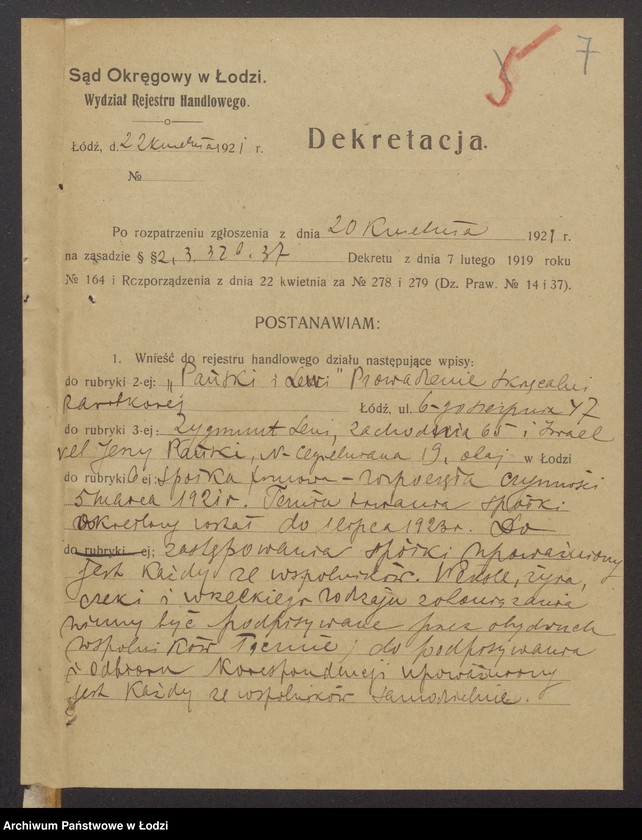 5 7
Sąd Okręgowy w Łodzi.
Wydział Rejestru Handlowego.
Dekretacja.
Łódź, d. 22 kwietnia 1921 r.
№
Po rozpatrzeniu zgłoszenia z dnia 20 Kwietnia 1921 r.
na zasadzie § § 2, 3. 37 Dekretu z dnia 7 lutego 1919 roku
№ 164 i Rozporządzenia z dnia 22 kwietnia za № 278 i 279 (Dz. Praw. № 14 i 37).
POSTANAWIAM:
1. Wnieść do rejestru handlowego działu następujące wpisy:
do rubryki 2-ej: „Pański i Lewi" Prowadzenie
Łódź, ul. 6-go sierpnia 47
do rubryki 3-ej: Zygmunt Lewi, Zachodnia 65 i Izrael
vel Jerzy Pański, 19, obaj w Łodzi
do rubryki 6 ej: spółka firmowa – rozpoczęła czynności
5 marca 1921 r. Termin trwania spółki
określony został do 1 lipca 1923 r. Do
do rubryki ej: zastępowania spółki upoważniony
jest każdy ze wspólników. Weksle, żyra,
czeki i wszelkiego rodzaju zobowiązania
winny być podpisywane przez obydwuch
wspólników łącznie; do podpisywania
i odbioru korespondencji upoważniony
jest każdy ze wspólników samodzielnie.
Archiwum Państwowe w Łodzi